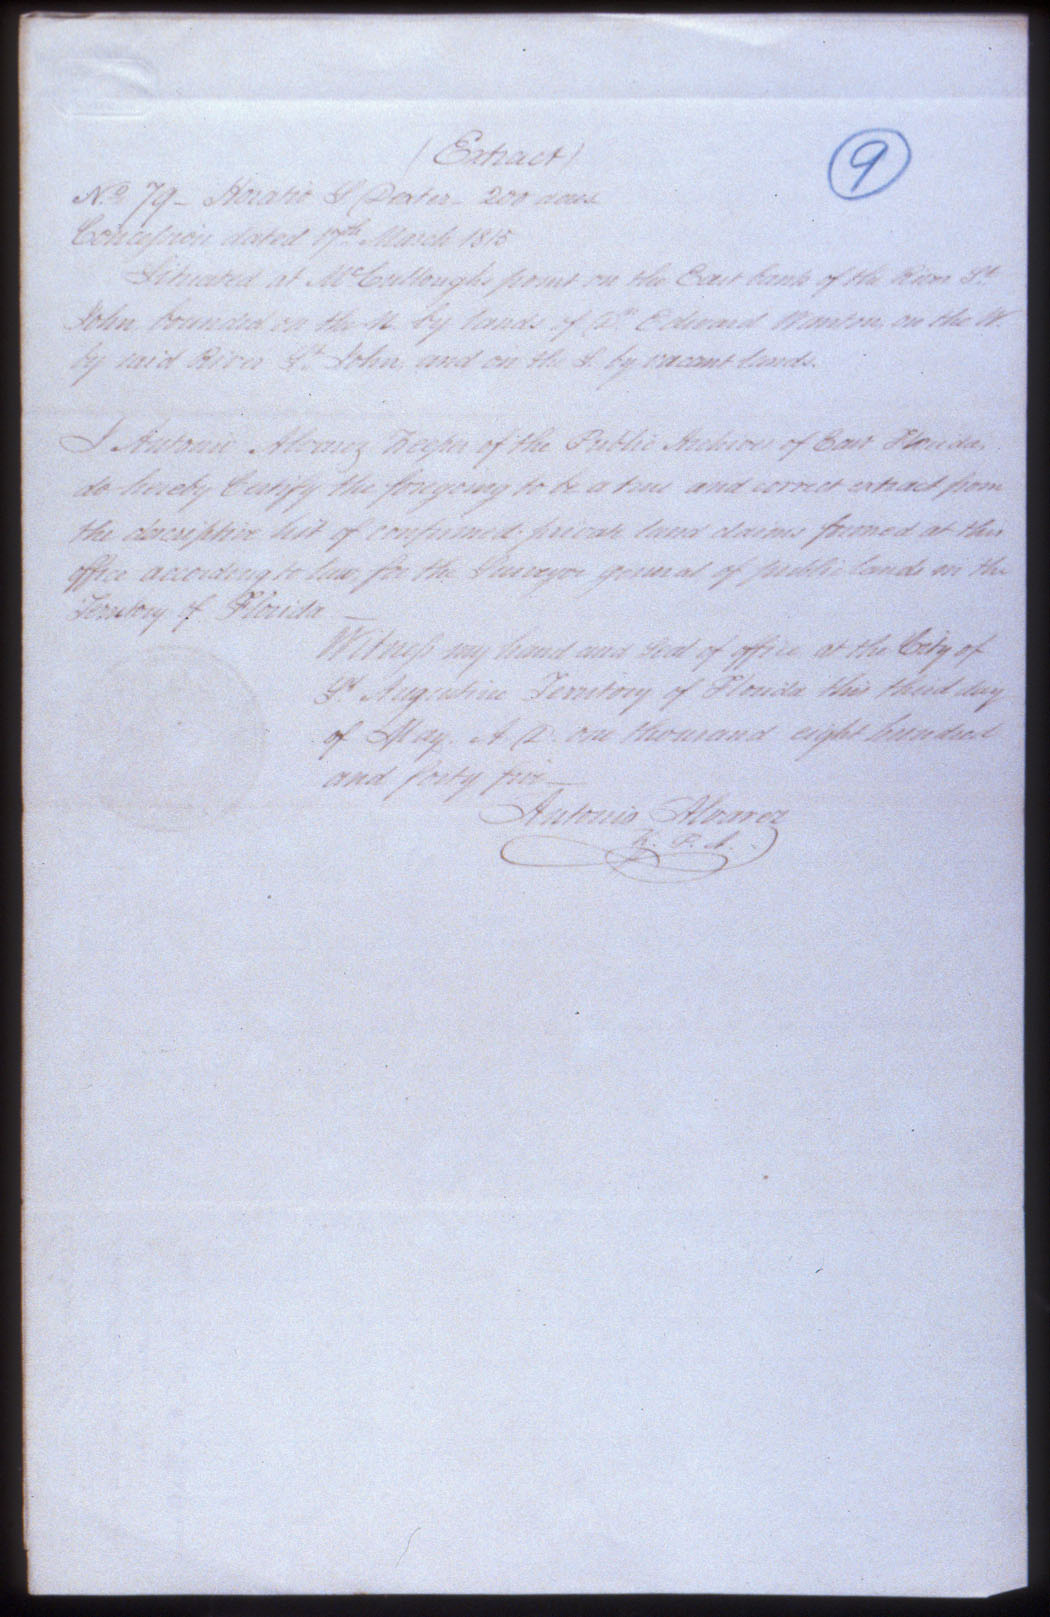 (Extract)
9
No. 79 - Horatio S Dexter - 200 acres
Concession dated 17th March 1815
Situated at McCulloughs point on the East bank of the River St.
John, bounded on the N. by lands of Dn. Edward Wanton, on the W.
by said River St. John, and on the S. by vacant lands.
I Antonio Alvarez Keeper of the Public Archives of East Florida,
do hereby Certify the foregoing to be a true and correct extract from
the descriptive list of confirmed private land claims formed at this
office according to law, for the Surveyor general of public lands in the
Territory of Florida —
Witness my hand and seal of office at the City of
St. Augustine Territory of Florida this third day
of May. A. D. one thousand eight hundred
and forty five —
Antonio Alvarez
K. P. A.